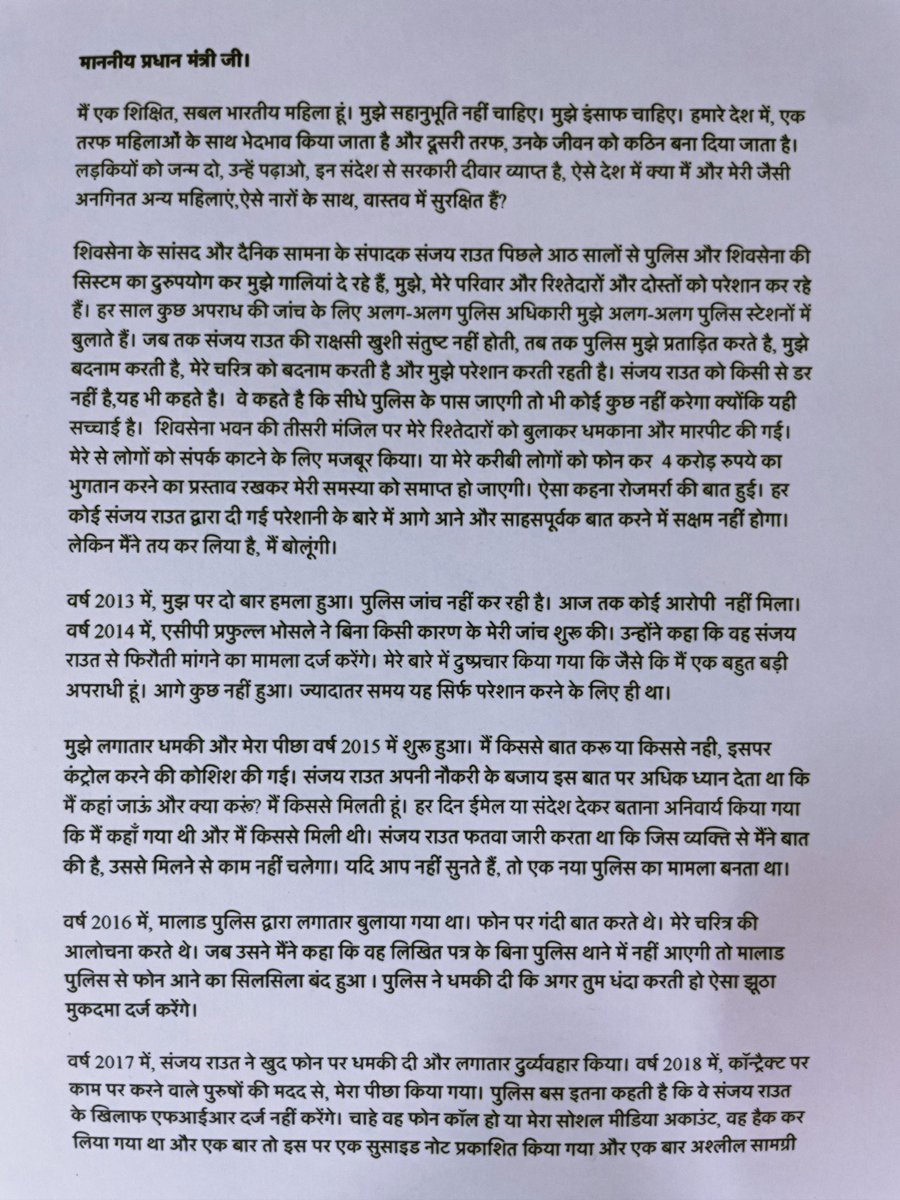 माननीय प्रधान मंत्री जी।
मैं एक शिक्षित, सबल भारतीय महिला हूं। मुझे सहानुभूति नहीं चाहिए। मुझे इंसाफ चाहिए। हमारे देश में, एक
तरफ महिलाओं के साथ भेदभाव किया जाता है और दूसरी तरफ, उनके जीवन को कठिन बना दिया जाता है।
लड़कियों को जन्म दो, उन्हें पढ़ाओ, इन संदेश से सरकारी दीवार व्याप्त है, ऐसे देश में क्या मैं और मेरी जैसी
अनगिनत अन्य महिलाएं,ऐसे नारों के साथ, वास्तव में सुरक्षित हैं?
शिवसेना के सांसद और दैनिक सामना के संपादक संजय राउत पिछले आठ सालों से पुलिस और शिवसेना की
सिस्टम का दुरुपयोग कर मुझे गालियां दे रहे हैं, मुझे, मेरे परिवार और रिश्तेदारों और दोस्तों को परेशान कर रहे
हैं। हर साल कुछ अपराध की जांच के लिए अलग-अलग पुलिस अधिकारी मुझे अलग-अलग पुलिस स्टेशनों में
बुलाते हैं। जब तक संजय राउत की राक्षसी खुशी संतुष्ट नहीं होती, तब तक पुलिस मुझे प्रताड़ित करते है, मुझे
बदनाम करती है, मेरे चरित्र को बदनाम करती है और मुझे परेशान करती रहती है। संजय राउत को किसी से डर
नहीं है,यह भी कहते है। वे कहते है कि सीधे पुलिस के पास जाएगी तो भी कोई कुछ नहीं करेगा क्योंकि यही
सच्चाई है। शिवसेना भवन की तीसरी मंजिल पर मेरे रिश्तेदारों को बुलाकर धमकाना और मारपीट की गई।
मेरे से लोगों को संपर्क काटने के लिए मजबूर किया। या मेरे करीबी लोगों को फोन कर 4 करोड़ रुपये का
भुगतान करने का प्रस्ताव रखकर मेरी समस्या को समाप्त हो जाएगी। ऐसा कहना रोजमर्रा की बात हुई। हर
कोई संजय राउत द्वारा दी गई परेशानी के बारे में आगे आने और साहसपूर्वक बात करने में सक्षम नहीं होगा।
लेकिन मैंने तय कर लिया है, मैं बोलूंगी।
वर्ष 2013 में, मुझ पर दो बार हमला हुआ। पुलिस जांच नहीं कर रही है। आज तक कोई आरोपी नहीं मिला।
वर्ष 2014 में, एसीपी प्रफुल्ल भोसले ने बिना किसी कारण के मेरी जांच शुरू की। उन्होंने कहा कि वह संजय
राउत से फिरौती मांगने का मामला दर्ज करेंगे। मेरे बारे में दुष्प्रचार किया गया कि जैसे कि मैं एक बहुत बड़ी
अपराधी हूं। आगे कुछ नहीं हुआ। ज्यादातर समय यह सिर्फ परेशान करने के लिए ही था।
मुझे लगातार धमकी और मेरा पीछा वर्ष 2015 में शुरू हुआ। मैं किससे बात करू या किससे नही, इसपर
कंट्रोल करने की कोशिश की गई। संजय राउत अपनी नौकरी के बजाय इस बात पर अधिक ध्यान देता था कि
मैं कहां जाऊं और क्या करूं? मैं किससे मिलती हूं। हर दिन ईमेल या संदेश देकर बताना अनिवार्य किया गया
कि मैं कहाँ गया थी और मैं किससे मिली थी। संजय राउत फतवा जारी करता था कि जिस व्यक्ति से मैंने बात
की है, उससे मिलने से काम नहीं चलेगा। यदि आप नहीं सुनते हैं, तो एक नया पुलिस का मामला बनता था।
वर्ष 2016 में, मालाड पुलिस द्वारा लगातार बुलाया गया था। फोन पर गंदी बात करते थे। मेरे चरित्र की
आलोचना करते थे। जब उसने मैंने कहा कि वह लिखित पत्र के बिना पुलिस थाने में नहीं आएगी तो मालाड
पुलिस से फोन आने का सिलसिला बंद हुआ । पुलिस ने धमकी दी कि अगर तुम धंदा करती हो ऐसा झूठा
मुकदमा दर्ज करेंगे।
वर्ष 2017 में, संजय राउत ने खुद फोन पर धमकी दी और लगातार दुर्व्यवहार किया। वर्ष 2018 में, कॉन्ट्रैक्ट पर
काम पर करने वाले पुरुषों की मदद से, मेरा पीछा किया गया। पुलिस बस इतना कहती है कि वे संजय राउत
के खिलाफ एफआईआर दर्ज नहीं करेंगे। चाहे वह फोन कॉल हो या मेरा सोशल मीडिया अकाउंट, वह हैक कर
लिया गया था और एक बार तो इस पर एक सुसाइड नोट प्रकाशित किया गया और एक बार अश्लील सामग्री